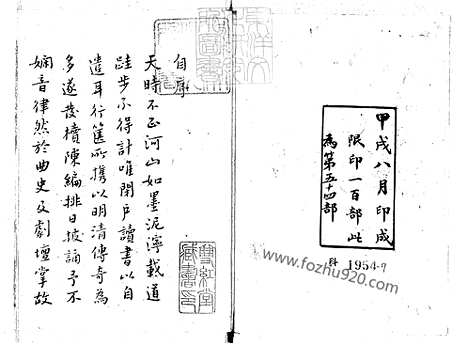 甲戌八月印成
限印一百部此
為第五十四部
科 1954-9
www.fozhu920.com
自序
天時不正河山如墨泥濘載道
跬步不得計唯閉戶讀書以自
遣耳行篋所攜以明清傳奇為
多遂發櫝陳編排日披誦予不
嫻音律然於曲史及劇壇掌故